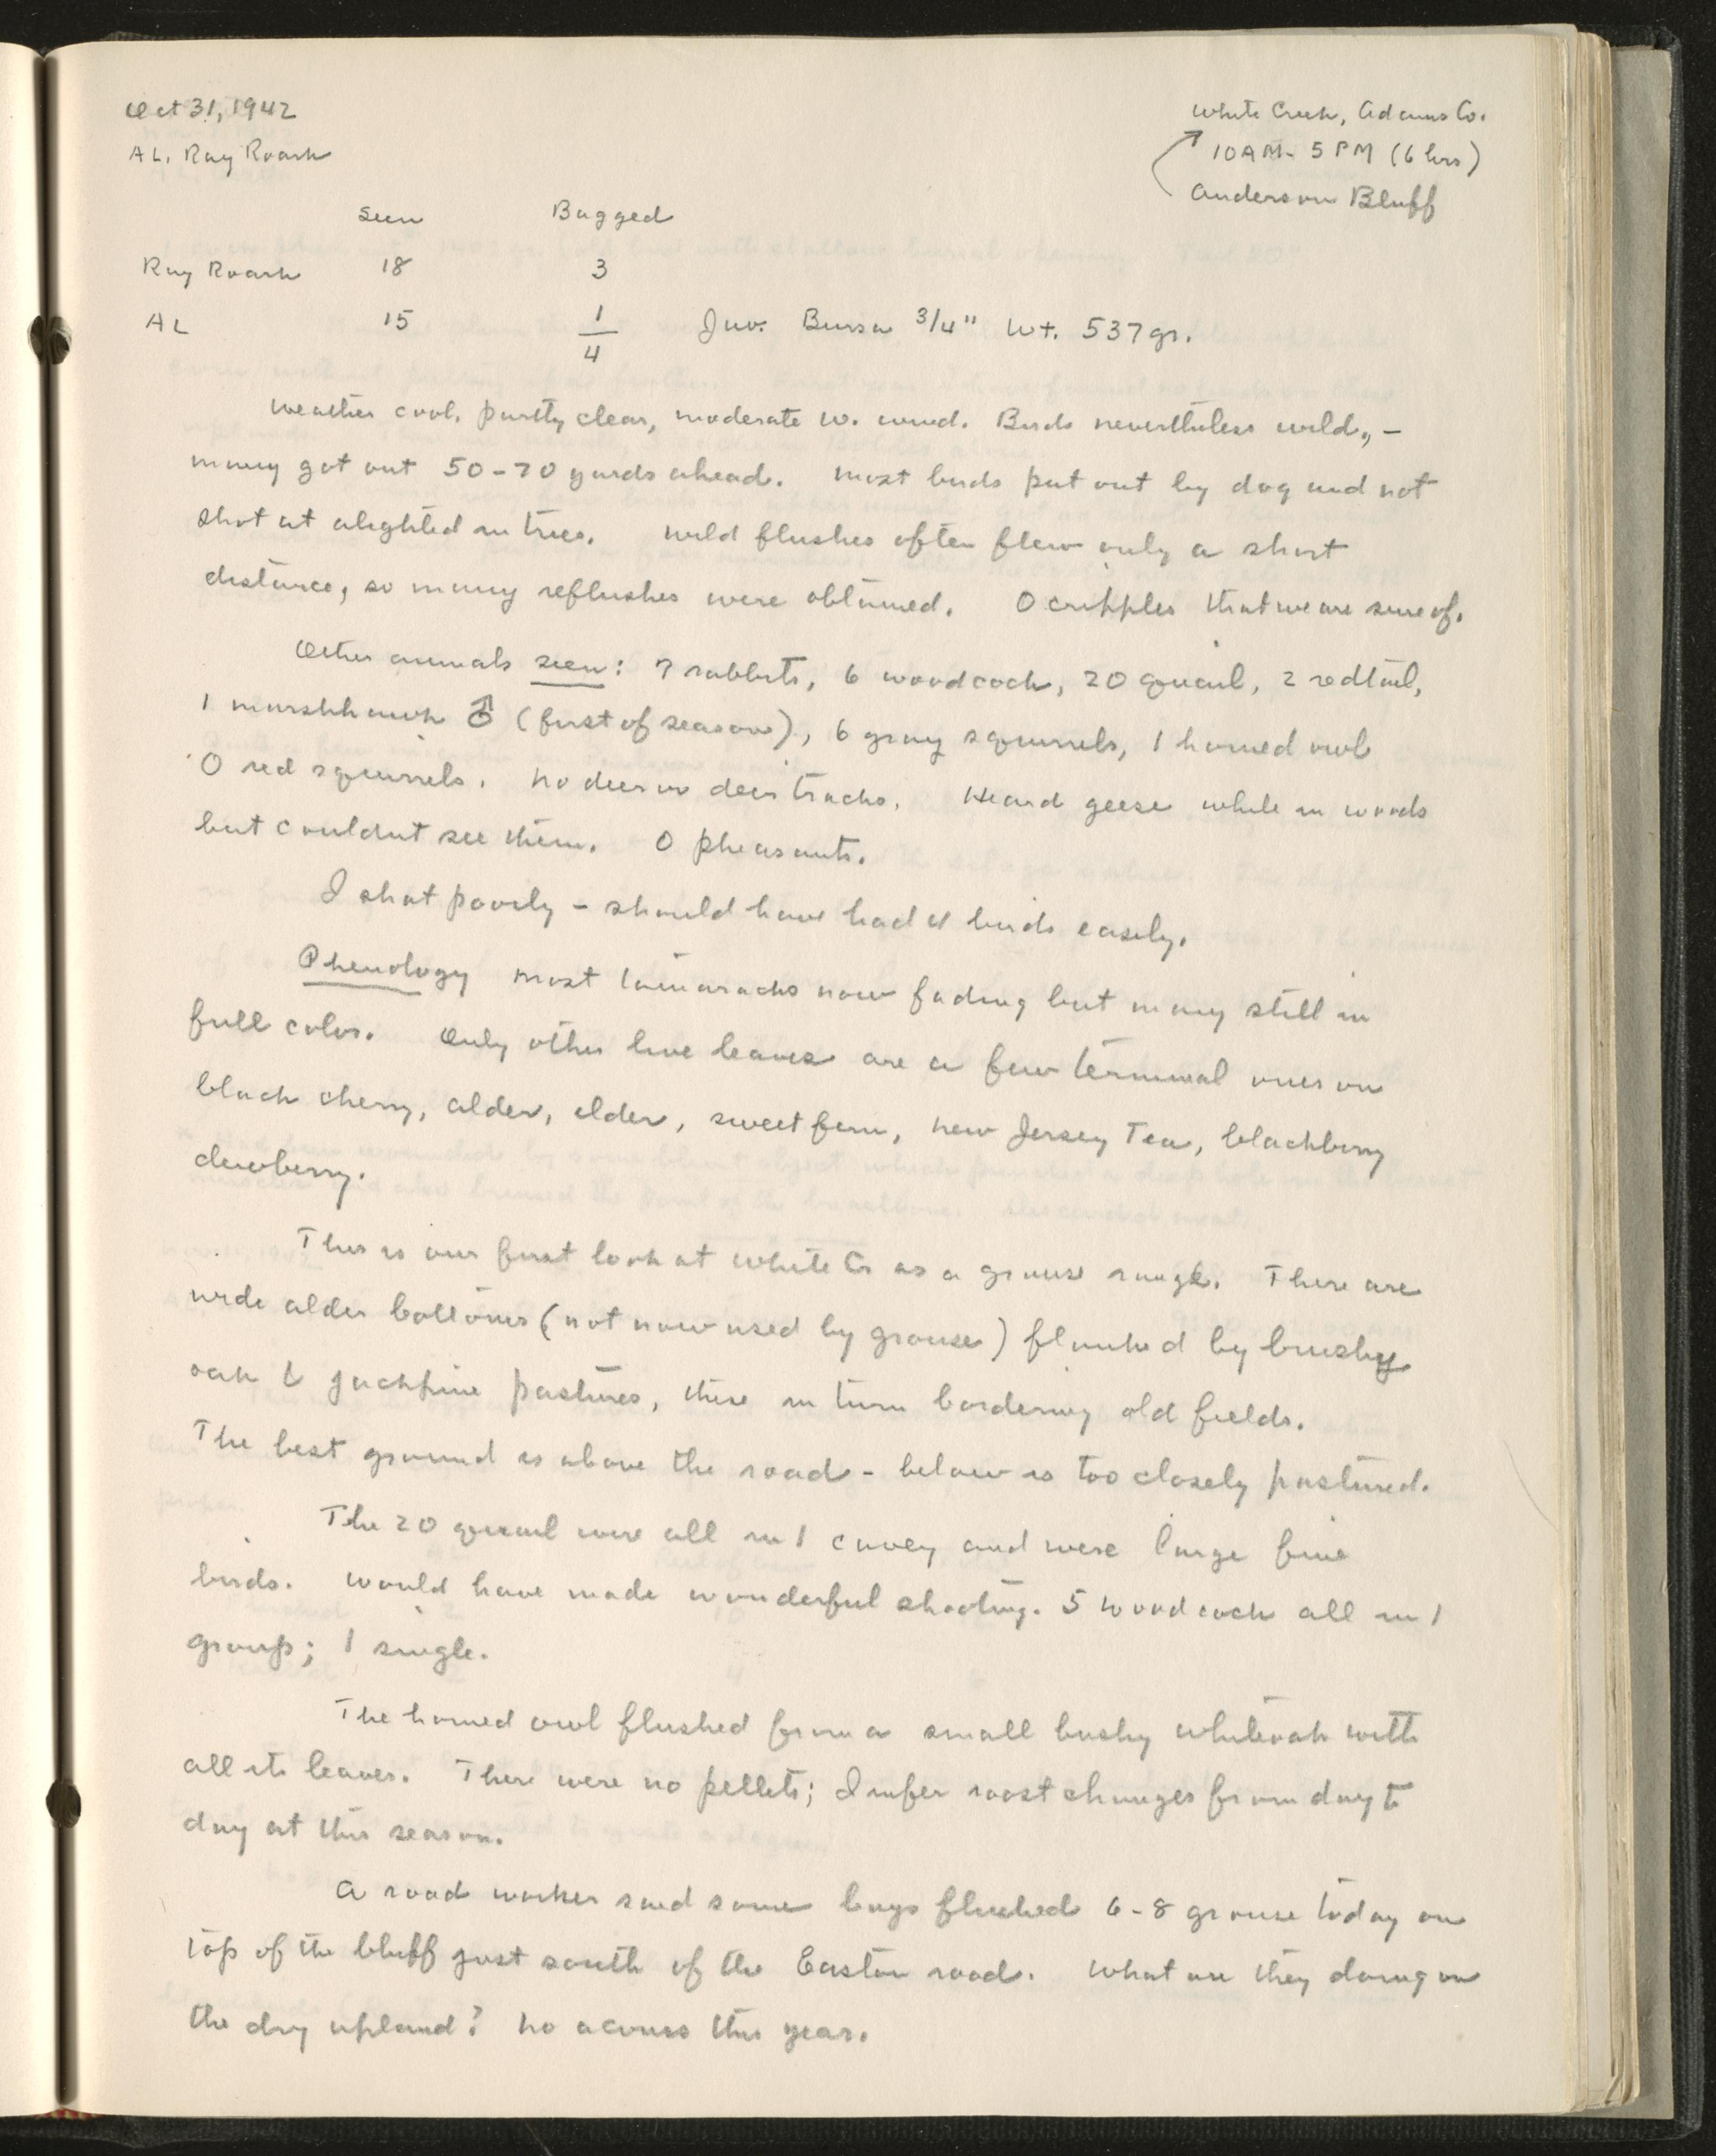 Oct 31, 1942
White Creek, Adams Co.
AL, Ray Roark
10 AM - 5 PM (6 hrs)
Anderson Bluff
Seen Bagged
Ray Roark 18 3
AL 15 1 Juv. Bursa 3/4" Wt. 537 gr.
4
Weather cool, partly clear, moderate W. wind. Birds nevertheless wild, -
many got out 50-70 yards ahead. Most birds put out by dog and not
shot at alighted in trees. Wild flushes often flew only a short
distance, so many reflushes were obtained. 0 cripples that we are sure of.
Other animals seen: 7 rabbits, 6 woodcock, 20 quail, 2 redtail,
1 marshhawk ♂ (first of season), 6 gray squirrels, 1 horned owl
0 red squirrels. No deer or deer tracks. Heard geese while in woods
but couldnt see them. 0 pheasants.
I shot poorly - should have had 4 birds easily.
Phenology Most tamaracks now fading but many still in
full color. Only other live leaves are a few terminal ones on
black cherry, alder, elder, sweet fern, New Jersey Tea, blackberry
dewberry.
This is our first look at White Cr as a grouse range. There are
wide alder bottoms (not now used by grouse) flanked by brushy
oak & jackpine pastures, these in turn bordering old fields.
The best ground is above the road - below is too closely pastured.
The 20 quail were all in 1 covey and were large fine
birds. Would have made wonderful shooting. 5 woodcock all in 1
group; 1 single.
The horned owl flushed from a small bushy whiteoak with
all its leaves. There were no pellets; I infer roost changes from day to
day at this season.
A road worker said some boys flushed 6-8 grouse today on
top of the bluff just south of the Easton road. What are they doing on
the dry upland? No acorns this year.